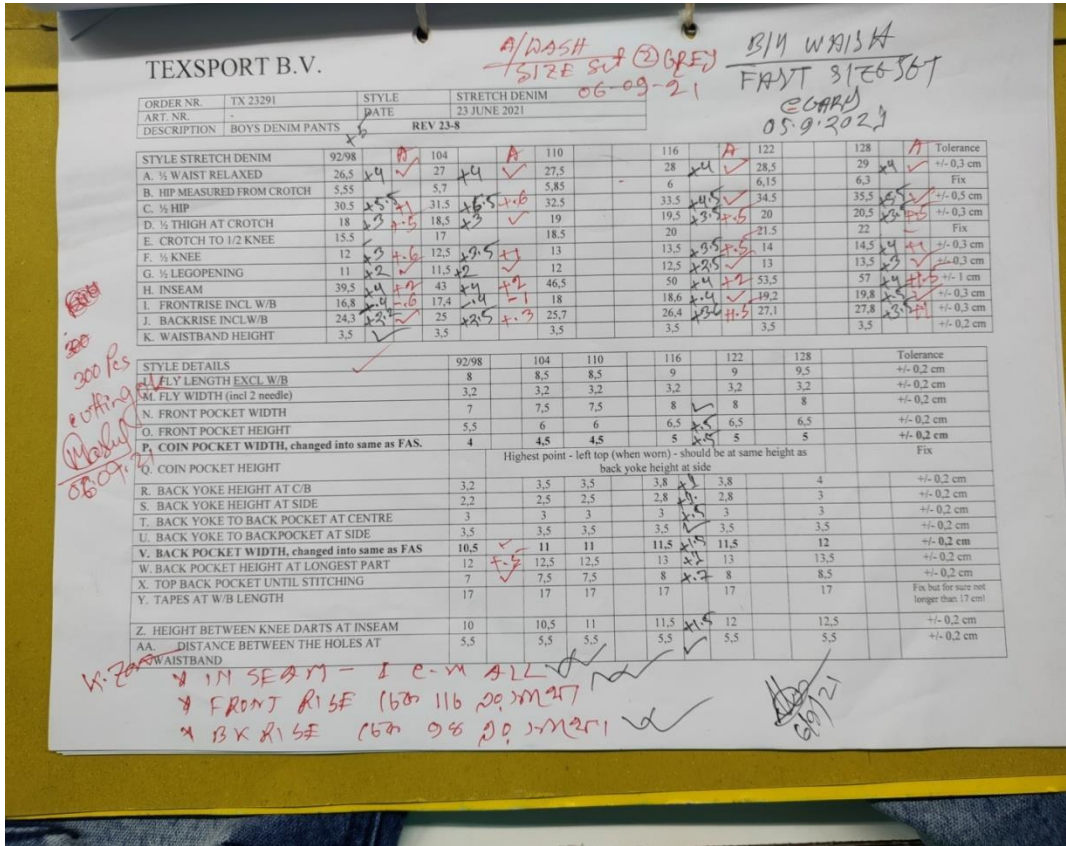 A/WASH
SIZE Set ② GREY
06-09-21
B/4 WAISH
FAST SIZE SET
05.9.2021
TEXSPORT B.V.
ORDER NR. TX 23291 STYLE STRETCH DENIM
ART. NR. - DATE 23 JUNE 2021
DESCRIPTION BOYS DENIM PANTS REV 23-8
STYLE STRETCH DENIM 92/98 A 104 A 110 116 A 122 128 A Tolerance
A. ½ WAIST RELAXED 26,5 +4 ✓ 27 +4 ✓ 27,5 28 +4 ✓ 28,5 29 +4 ✓ +/- 0,3 cm
B. HIP MEASURED FROM CROTCH 5,55 5,7 5,85 6 6,15 6,3 Fix
C. ½ HIP 30.5 +5.5 +1 31.5 +6.5 +.6 32.5 33.5 +4.5 ✓ 34.5 35.5 ✓ +/- 0,5 cm
D. ½ THIGH AT CROTCH 18 +3 +.5 18,5 +3 ✓ 19 19,5 +3.5 +.5 20 20,5 +.5 +/- 0,3 cm
E. CROTCH TO 1/2 KNEE 15.5 17 18.5 20 21.5 22 Fix
F. ½ KNEE 12 +3 +.6 12,5 +3.5 +1 13 13,5 +3.5 +.5 14 14,5 +4 +1 +/- 0,3 cm
G. ½ LEGOPENING 11 +2 ✓ 11,5 +2 ✓ 12 12,5 +2.5 ✓ 13 13,5 +3 ✓ +/- 0,3 cm
H. INSEAM 39,5 +4 +2 43 +4 +2 46,5 50 +4 +2 53,5 57 +4 +1.5 +/- 1 cm
I. FRONTRISE INCL W/B 16,8 -.6 17,4 -.4 -1 18 18,6 +.4 ✓ 19,2 19,8 +.5 ✓ +/- 0,3 cm
J. BACKRISE INCLW/B 24,3 ✓ 25 +2.5 +.3 25,7 26,4 27,1 27,8 +/- 0,3 cm
K. WAISTBAND HEIGHT 3,5 ✓ 3,5 3,5 3,5 3,5 3,5 +/- 0,2 cm
300
300 Pcs
cutting ok
06.09.21
STYLE DETAILS 92/98 104 110 116 122 128 Tolerance
FLY LENGTH EXCL W/B 8 8,5 8,5 9 9 9,5 +/- 0,2 cm
M. FLY WIDTH (incl 2 needle) 3,2 3,2 3,2 3,2 3,2 3,2 +/- 0,2 cm
N. FRONT POCKET WIDTH 7 7,5 7,5 8 ✓ 8 8 +/- 0,2 cm
O. FRONT POCKET HEIGHT 5,5 6 6 6,5 +.5 6,5 6,5 +/- 0,2 cm
P. COIN POCKET WIDTH, changed into same as FAS. 4 4,5 4,5 5 +.5 5 5 +/- 0,2 cm
Q. COIN POCKET HEIGHT Highest point - left top (when worn) - should be at same height as back yoke height at side Fix
R. BACK YOKE HEIGHT AT C/B 3,2 3,5 3,5 3,8 3,8 4 +/- 0,2 cm
S. BACK YOKE HEIGHT AT SIDE 2,2 2,5 2,5 2,8 2,8 3 +/- 0,2 cm
T. BACK YOKE TO BACK POCKET AT CENTRE 3 3 3 3 +.5 3 3 +/- 0,2 cm
U. BACK YOKE TO BACKPOCKET AT SIDE 3,5 3,5 3,5 3,5 ✓ 3,5 3,5 +/- 0,2 cm
V. BACK POCKET WIDTH, changed into same as FAS 10,5 ✓ 11 11 11,5 +1.5 11,5 12 +/- 0,2 cm
W. BACK POCKET HEIGHT AT LONGEST PART 12 +.5 12,5 12,5 13 +1 13 13,5 +/- 0,2 cm
X. TOP BACK POCKET UNTIL STITCHING 7 ✓ 7,5 7,5 8 +.7 8 8,5 +/- 0,2 cm
Y. TAPES AT W/B LENGTH 17 17 17 17 17 17 Fix but for sure not longer than 17 cm!
Z. HEIGHT BETWEEN KNEE DARTS AT INSEAM 10 10,5 11 11,5 +1.5 12 12,5 +/- 0,2 cm
AA. DISTANCE BETWEEN THE HOLES AT WAISTBAND 5,5 5,5 5,5 5,5 ✓ 5,5 5,5 +/- 0,2 cm
* IN SEAM - 1 C-M ALL
* FRONT RISE 116
* BK RISE 98
6/9/21